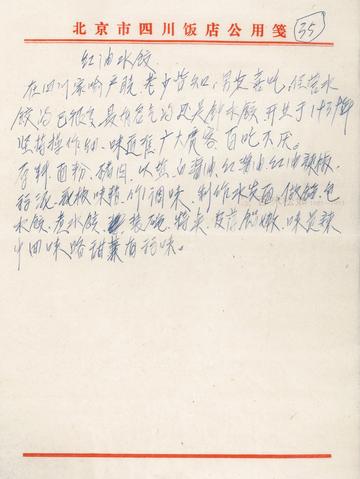 北京市四川饭店公用笺
35
红油水饺
在四川家喻户晓，老少皆知，男女喜吃，经营水
饺的已很多，最有名气的还是钟水饺，开业于1931年
坚持操作细，味道佳，广大宾客，百吃不厌。
原料，面粉，猪肉，以熬白酱油，红酱油，红油辣椒，
味精，作调味，制作水发面，做馅，包
水饺，煮水饺，装碗，特点，皮薄馅嫩，味是辣
中回味略甜兼有蒜味。